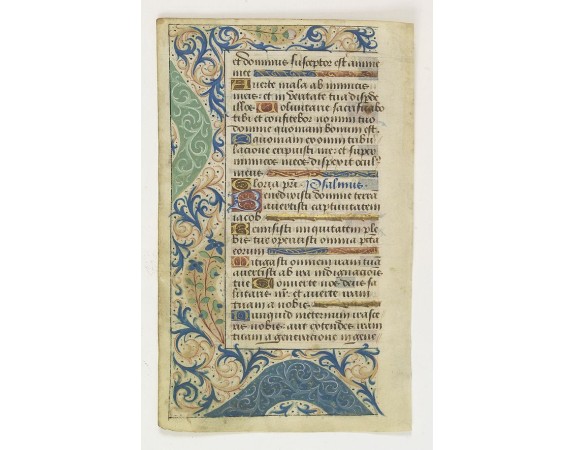 et dominus susceptor est anime
mee
Auerte mala ab inimicis
meis: et in veritate tua disper
illos Voluntarie sacrificabo
tibi et confitebor nomini tuo
domine quoniam bonum est.
Quoniam ex omni tribu
lacione eripuisti me: et super
inimicos meos despexit ocul
meus
Gloria pri Psalmus
Benedixisti domine terrā
auertisti captiuitatem
iacob
Remisisti iniquitatem ple
bis tue operuisti omnia pcta
eorum
Mitigasti omnem iram tuā
auertisti ab ira indignacōis
tue Conuerte nos deus sa
lutaris nr: et auerte iram
tuam a nobis
Nunquid in eternum irasce
ris nobis: aut extendes iram
tuam a generacione in gene